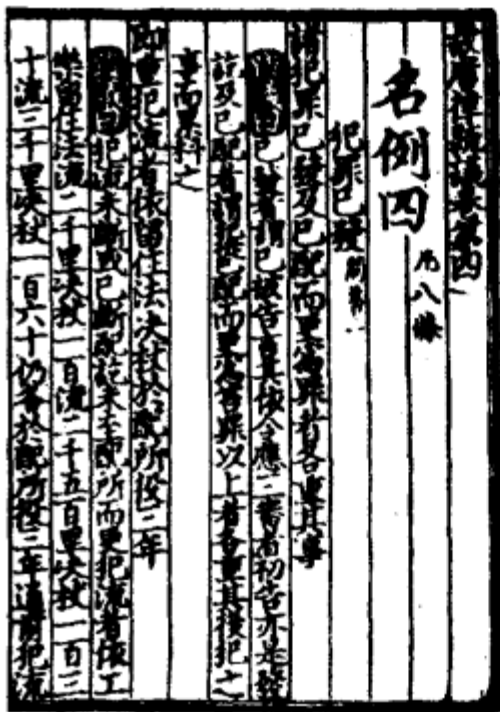 故唐律疏議卷第四
名例四 凡八條
犯罪已發
諸犯罪已發及已配而更為罪者各重其事
疏議曰已發者謂已被告言其依令應三審者初告亦是發
訖及已配者謂犯徒已配而更為笞罪以上者各重其後犯之
事而累科之
即重犯流者依留住法決杖於配所役三年
疏議曰犯流未斷或已斷配訖未至配所而更犯流者依工
樂留住法流二千里決杖一百流二千五百里決杖一百三
十流三千里決杖一百六十仍各於配所役三年通前犯流